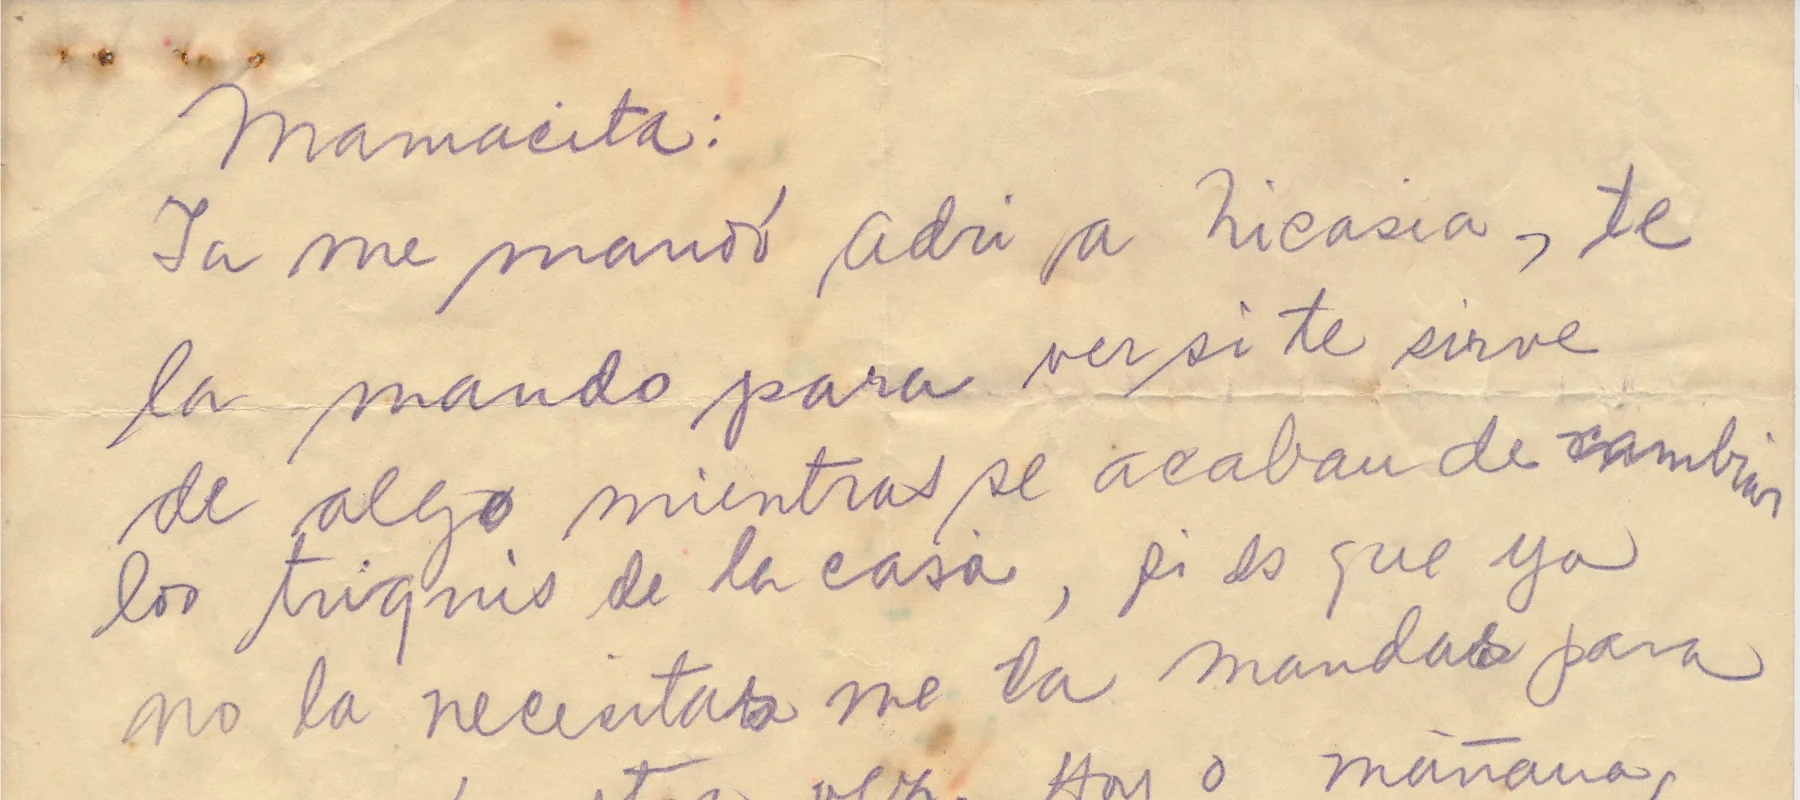 Mamacita:
Ya me mandó Adri a Nicasia, te
la mando para ver si te sirve
de algo mientras se acaban de cambiar
los triquis de la casa, si es que ya
no la necesitas me la mandas para
otra vez. Hoy o mañana,